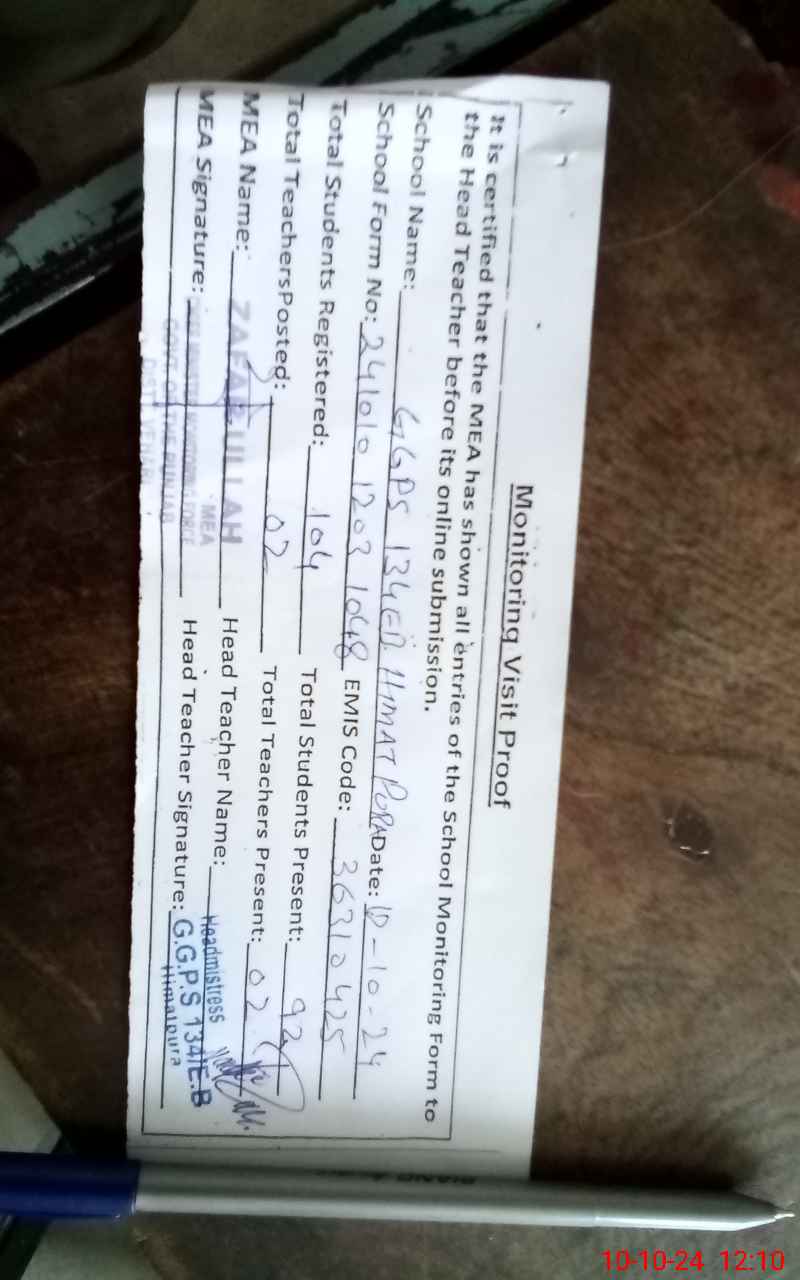 Monitoring Visit Proof
It is certified that the MEA has shown all entries of the School Monitoring Form to
the Head Teacher before its online submission.
School Name: GGPS 134EB. HIMAT PURA Date: 10-10-24
School Form No: 241010 1203 1048 EMIS Code: 36310425
Total Students Registered: 104 Total Students Present: 92
Total TeachersPosted: 02 Total Teachers Present: 02
MEA Name: ZAFAR ULLAH Head Teacher Name:
MEA
MEA Signature: Head Teacher Signature:
GOVT. OF THE PUNJAB
Headmistress
G.G.P.S 134/E.B
Himatpura
PIANO
10-10-24 12:10